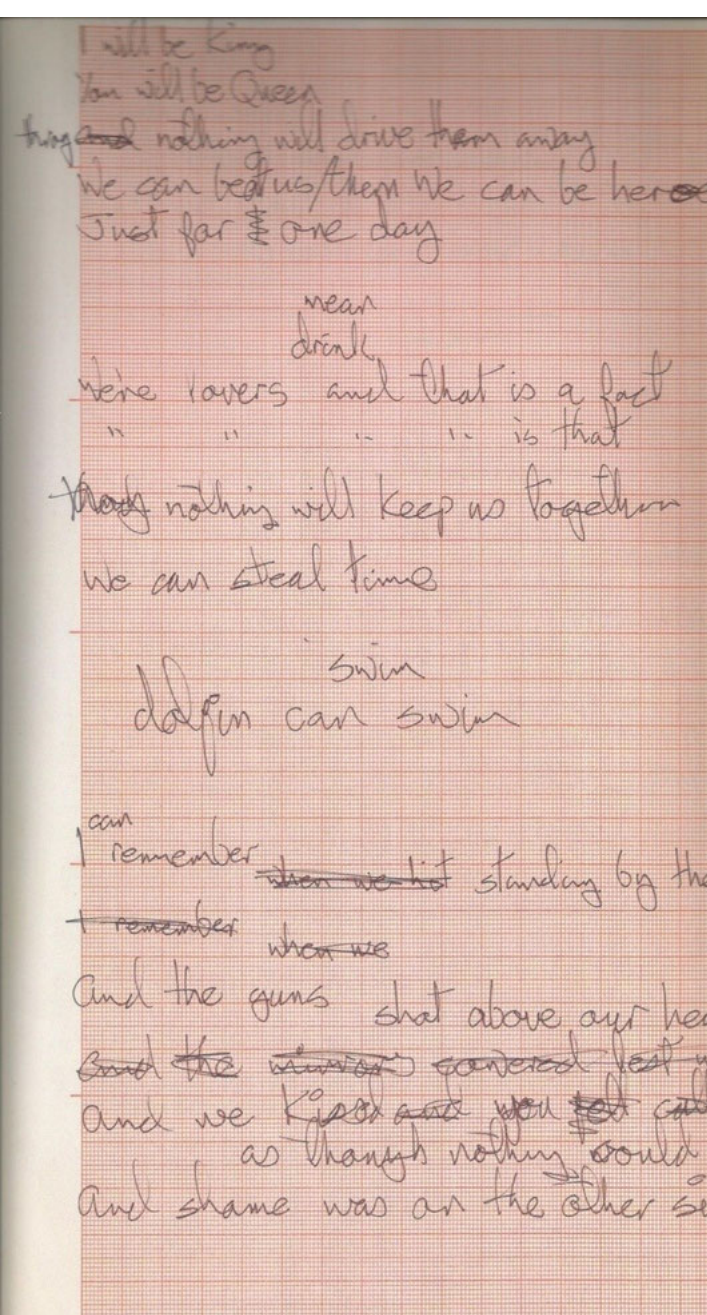 I will be King
You will be Queen
thoug and nothing will drive them away
We can beat us/them We can be heroe
Just for one day
mean
drink
We're lovers and that is a fact
" " " " is that
thoug nothing will keep us together
we can steal time
swim
dolfin can swim
can
I remember when we hot standing by the
I remember
when we
and the guns shot above our hea
and the cowered lest
and we kissed and you
as though nothing could
and shame was on the other si